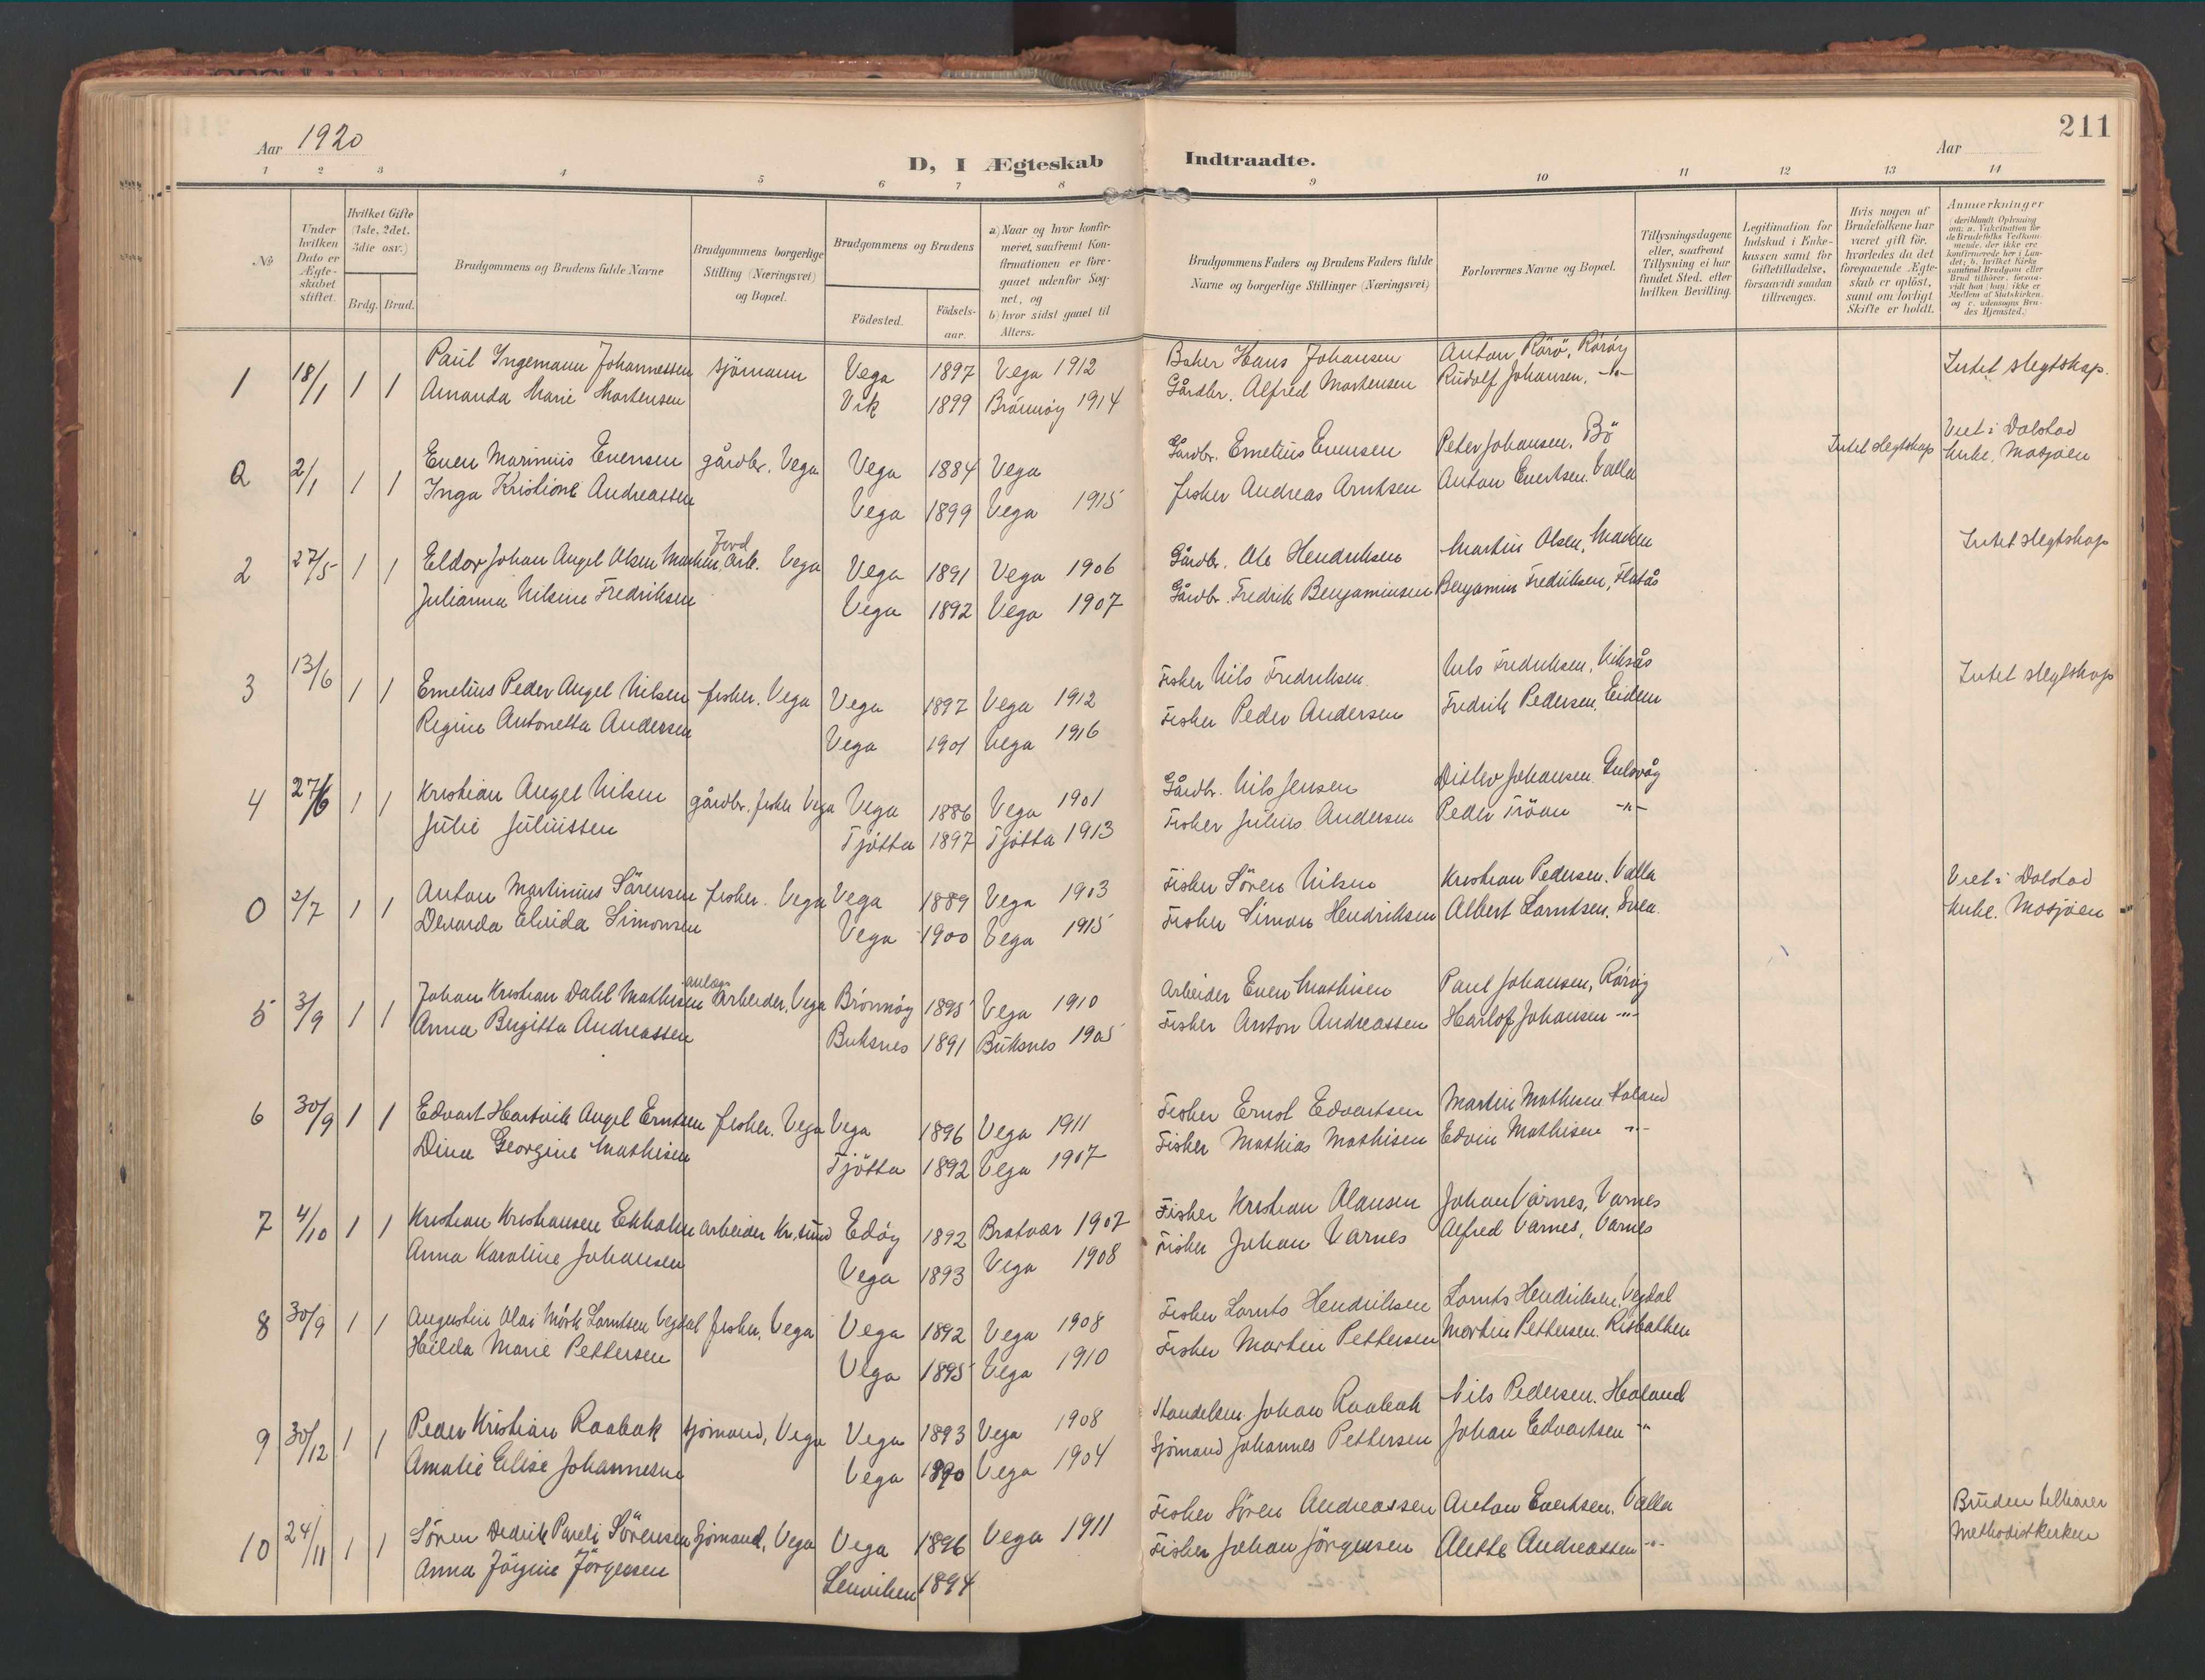 Aar 1920
211
Aar
D, I Ægteskab Indtraadte.
1 2 3 4 5 6 7 8 9 10 11 12 13 14
No.
Under hvilken Dato er Ægteskabet stiftet.
Hvilket Gifte (1ste, 2det, 3die osv.)
Brdg. Brud.
Brudgommens og Brudens fulde Navne
Brudgommens borgerlige Stilling (Næringsvei) og Bopæl.
Brudgommens og Brudens
Födested.
Födselsaar.
a) Naar og hvor konfirmeret, saafremt Konfirmationen er foregaaet udenfor Sognet, og
b) hvor sidst gaaet til Alters.
Brudgommens Faders og Brudens Faders fulde Navne og borgerlige Stillinger (Næringsvei)
Forlovernes Navne og Bopæl.
Tillysningsdagene eller, saafremt Tillysning ei har fundet Sted, efter hvilken Bevilling.
Legitimation for Indskud i Enkekassen samt for Giftetilladelse, forsaavidt saadan tiltrænges.
Hvis nogen af Brudefolkene har været gift för, hvorledes da det foregaaende Ægteskab er oplöst, samt om lovligt Skifte er holdt.
Anmerkninger (deriblandt Oplysning om: a. Vakcination for de Brudefolks Vedkommende, der ikke ere konfirmerede her i Landet; b. hvilket Kirkesamfund Brudgom eller Brud tilhörer, forsaavidt han (hun) ikke er Medlem af Statskirken, og c. udensogns Brudes Hjemsted.)
1 18/1 1 1 Paul Ingemann Johannessen sjömann Vega 1897 Vega 1912 Baker Hans Johansen Anton Rörö, Röröy Intet slegtskap.
Amanda Marie Martensen Vik 1899 Brönnöy 1914 Gårdbr. Alfred Martensen Rudolf Johansen, -"-
2 2/1 1 1 Even Marinius Evensen gårdbr. Vega Vega 1884 Vega Gårdbr. Emelius Evensen Peter Johansen, Bö Intet slegtskap Viet i Dolstad
Inga Kristione Andreassen Vega 1899 Vega 1915 fisker Andreas Arntsen Anton Evertsen. Valla kirke. Mosjøen
2 27/5 1 1 Eldor Johan Angel Olsen Marken. Jord Arb. Vega Vega 1891 Vega 1906 Gårdbr. Ole Hendriksen Martin Olsen, Marken Intet slegtskap
Julianna Nilsine Fredriksen Vega 1892 Vega 1907 Gårdbr. Fredrik Benjaminsen Benjamin Fredriksen, Flatås
3 13/6 1 1 Emelius Peder Angel Nilsen fisker. Vega Vega 1897 Vega 1912 Fisker Nils Fredriksen Nils Fredriksen, Niksås Intet slegtskap
Regine Antonetta Andersen Vega 1901 Vega 1916 Fisker Peder Andersen Fredrik Pedersen, Eidem
4 27/6 1 1 Kristian Angel Nilsen gårdbr. fisker Vega Vega 1886 Vega 1901 Gårdbr. Nils Jensen Ditlev Johansen. Gulsvåg
Julie Juliussen Tjötta 1897 Tjötta 1913 Fisker Julius Andersen Peder Tröan -"-
0 2/7 1 1 Anton Martinius Sörensen fisker. Vega Vega 1889 Vega 1903 Fisker Sören Nilsen Kristian Pedersen. Valla Viet i Dolstad
Elvida Simonsen Vega 1900 Vega 1915 Fisker Simon Hendriksen Albert Lorntsen. kirke. Mosjøen
5 3/9 1 1 Johan Kristian Dahl Mathisen anlægs Arbeider, Vega Brönnöy 1895 Vega 1910 Arbeider Even Mathisen Paul Johansen, Röröy
Anna Birgitta Andreassen Buksnes 1891 Buksnes 1905 Fisker Anton Andreassen Harlof Johansen -"-
6 30/9 1 1 Edvart Hartvik Angel Erntsen fisker. Vega Vega 1896 Vega 1911 Fisker Ernst Edvartsen Martin Mathisen Holand
Dina Georgine Mathisen Tjötta 1892 Vega 1907 Fisker Mathias Mathisen Edvin Mathisen -"-
7 4/10 1 1 Kristian Kristiansen Ekholm arbeider Kr.sund Edöy 1892 Bratvær 1907 Fisker Kristian Olausen Johan Varnes, Varnes
Anna Karoline Johansen Vega 1893 Vega 1908 Fisker Johan Varnes Alfred Varnes, Varnes
8 30/9 1 1 Augustin Olai Mörk Lorntsen Vegdal fisker, Vega Vega 1892 Vega 1908 Fisker Lornts Hendriksen Lornts Hendriksen, Vegdal
Hilda Marie Pettersen Vega 1895 Vega 1910 Fisker Martin Pettersen Martin Pettersen. Risbakken
9 30/12 1 1 Peder Kristian Raabak sjömand, Vega Vega 1893 Vega 1908 Handelsm. Johan Raabak Nils Pedersen. Haaland
Amalie Elise Johannesen Vega 1890 Vega 1904 Sjömand Johannes Pettersen Johan Edvartsen -"-
10 24/11 1 1 Sören Dedrik Pareli Sörensen Sjömand, Vega Vega 1896 Vega 1911 Fisker Sören Andreassen Anton Evertsen. Valla Bruden tilhörer
Anna Jörgine Jörgensen Lenviken 1894 Fisker Johan Jörgensen Alette Andreassen -"- Methodistkirken